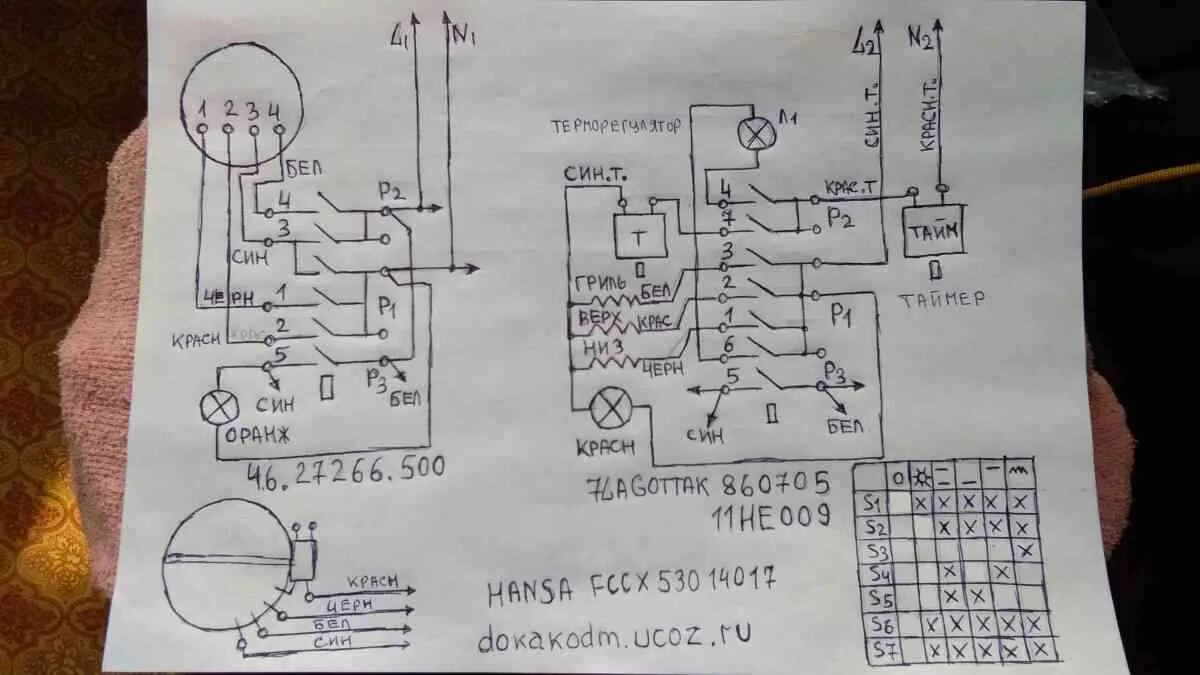 L1 N1
1 2 3 4
БЕЛ
4
P2
3
СИН
ЧЕРН 1
P1
КРАСН 2
5
P3
СИН
БЕЛ
ОРАНЖ
46.27266.500
КРАСН
ЧЕРН
БЕЛ
СИН
L2 N2
ТЕРМОРЕГУЛЯТОР
Л1
СИН.Т.
КРАСН.Т.
СИН.Т.
4
КРАС.Т
7
P2
Т
ТАЙМ
3
ГРИЛЬ БЕЛ
2
ТАЙМЕР
ВЕРХ КРАС
1
P1
НИЗ ЧЕРН
6
5
P3
СИН
БЕЛ
КРАСН
7LAGOTTAK 860705
11HE009
HANSA FCCX53014017
dokakodm.ucoz.ru
O
S1 X X X X X
S2 X X X X
S3 X
S4 X X
S5 X X
S6 X X X X X
S7 X X X X X